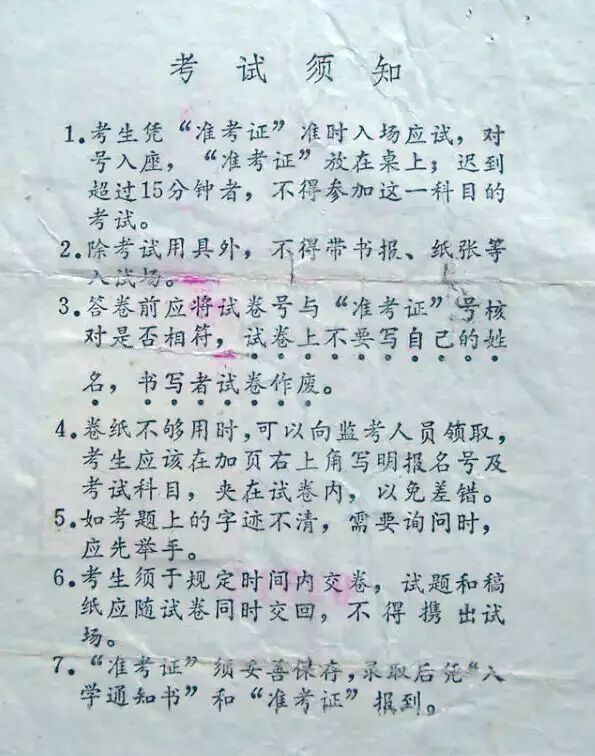 考试须知
1.考生凭“准考证”准时入场应试，对
号入座，“准考证”放在桌上；迟到
超过15分钟者，不得参加这一科目的
考试。
2.除考试用具外，不得带书报、纸张等
入试场。
3.答卷前应将试卷号与“准考证”号核
对是否相符，试卷上不要写自己的姓
名，书写者试卷作废。
4.卷纸不够用时，可以向监考人员领取，
考生应该在加页右上角写明报名号及
考试科目，夹在试卷内，以免差错。
5.如考题上的字迹不清，需要询问时，
应先举手。
6.考生须于规定时间内交卷，试题和稿
纸应随试卷同时交回，不得携出试
场。
7.“准考证”须妥善保存，录取后凭“入
学通知书”和“准考证”报到。